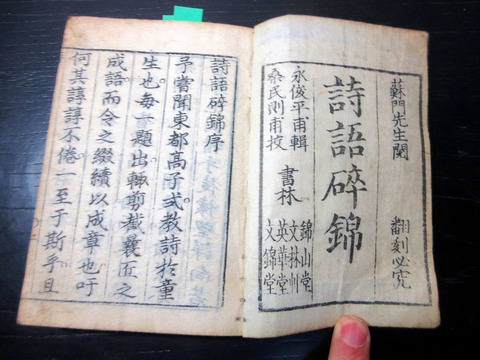 蘇門先生閲 翻刻必究
詩語碎錦
永俊平甫輯
桑民則甫校
書林
錦山堂
文林
英華堂
文錦堂
詩語碎錦序
予嘗聞東都髙子式教詩於童
生也每一題出輒剪截曩匠之
成語而令之綴續以成章也吁
何其諄諄不倦一至于斯乎且